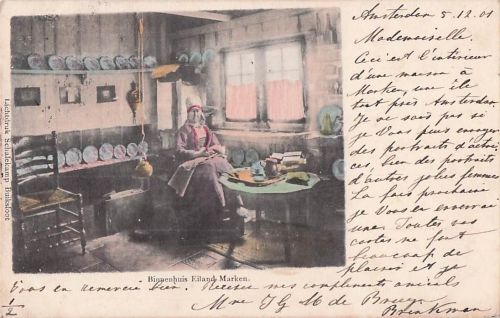 Amsterdam 5.12.01
Mademoiselle.
Ceci est l'intérieur
d'une maison à
Marken, une île
tout près Amsterdam
Je ne sais pas si
je Vous puis envoyer
des portraits d'actri-
ces, bien des portraits
d'autres jolies femmes
La fois prochaine
je Vous en enverrai
une. Toutes vos
cartes me font
beaucoup de
plaisir et je
Vous en remercie bien. Recevez mes compliments amicals
Mme J G M de Bruyn
Brinkman
1/2
Binnenhuis Eiland Marken.
Lichtdruk Schalekamp Buiksloot